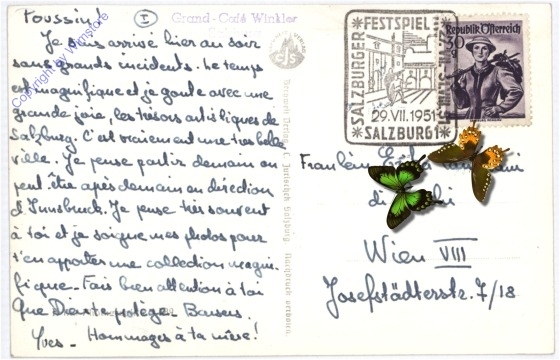 Poussin!
I
Grand-Café Winkler
Je suis arrivé hier au soir
sans grands incidents. Le temps
est magnifique et je goute avec une
grande joie, les trésors artistiques de
Salzburg. C'est vraiment une très belle
ville. Je pense partir demain ou
peut être après demain en direction
d'Innsbruck. Je pense très souvent
à toi et je soigne mes photos pour
t'en apporter une collection magni-
fique. Fais bien attention à toi
Que Dieu te protège. Baisers.
Yves - Hommages à ta mère!
Copyright by
cjs
Bergwelt Verlag C. Jurischek Salzburg. Nachdruck verboten.
SALZBURGER FESTSPIELE
29.VII.1951
SALZBURG 1
Republik Österreich
30
Fräulein
Wien VIII
Josefstädterstr. 7/18